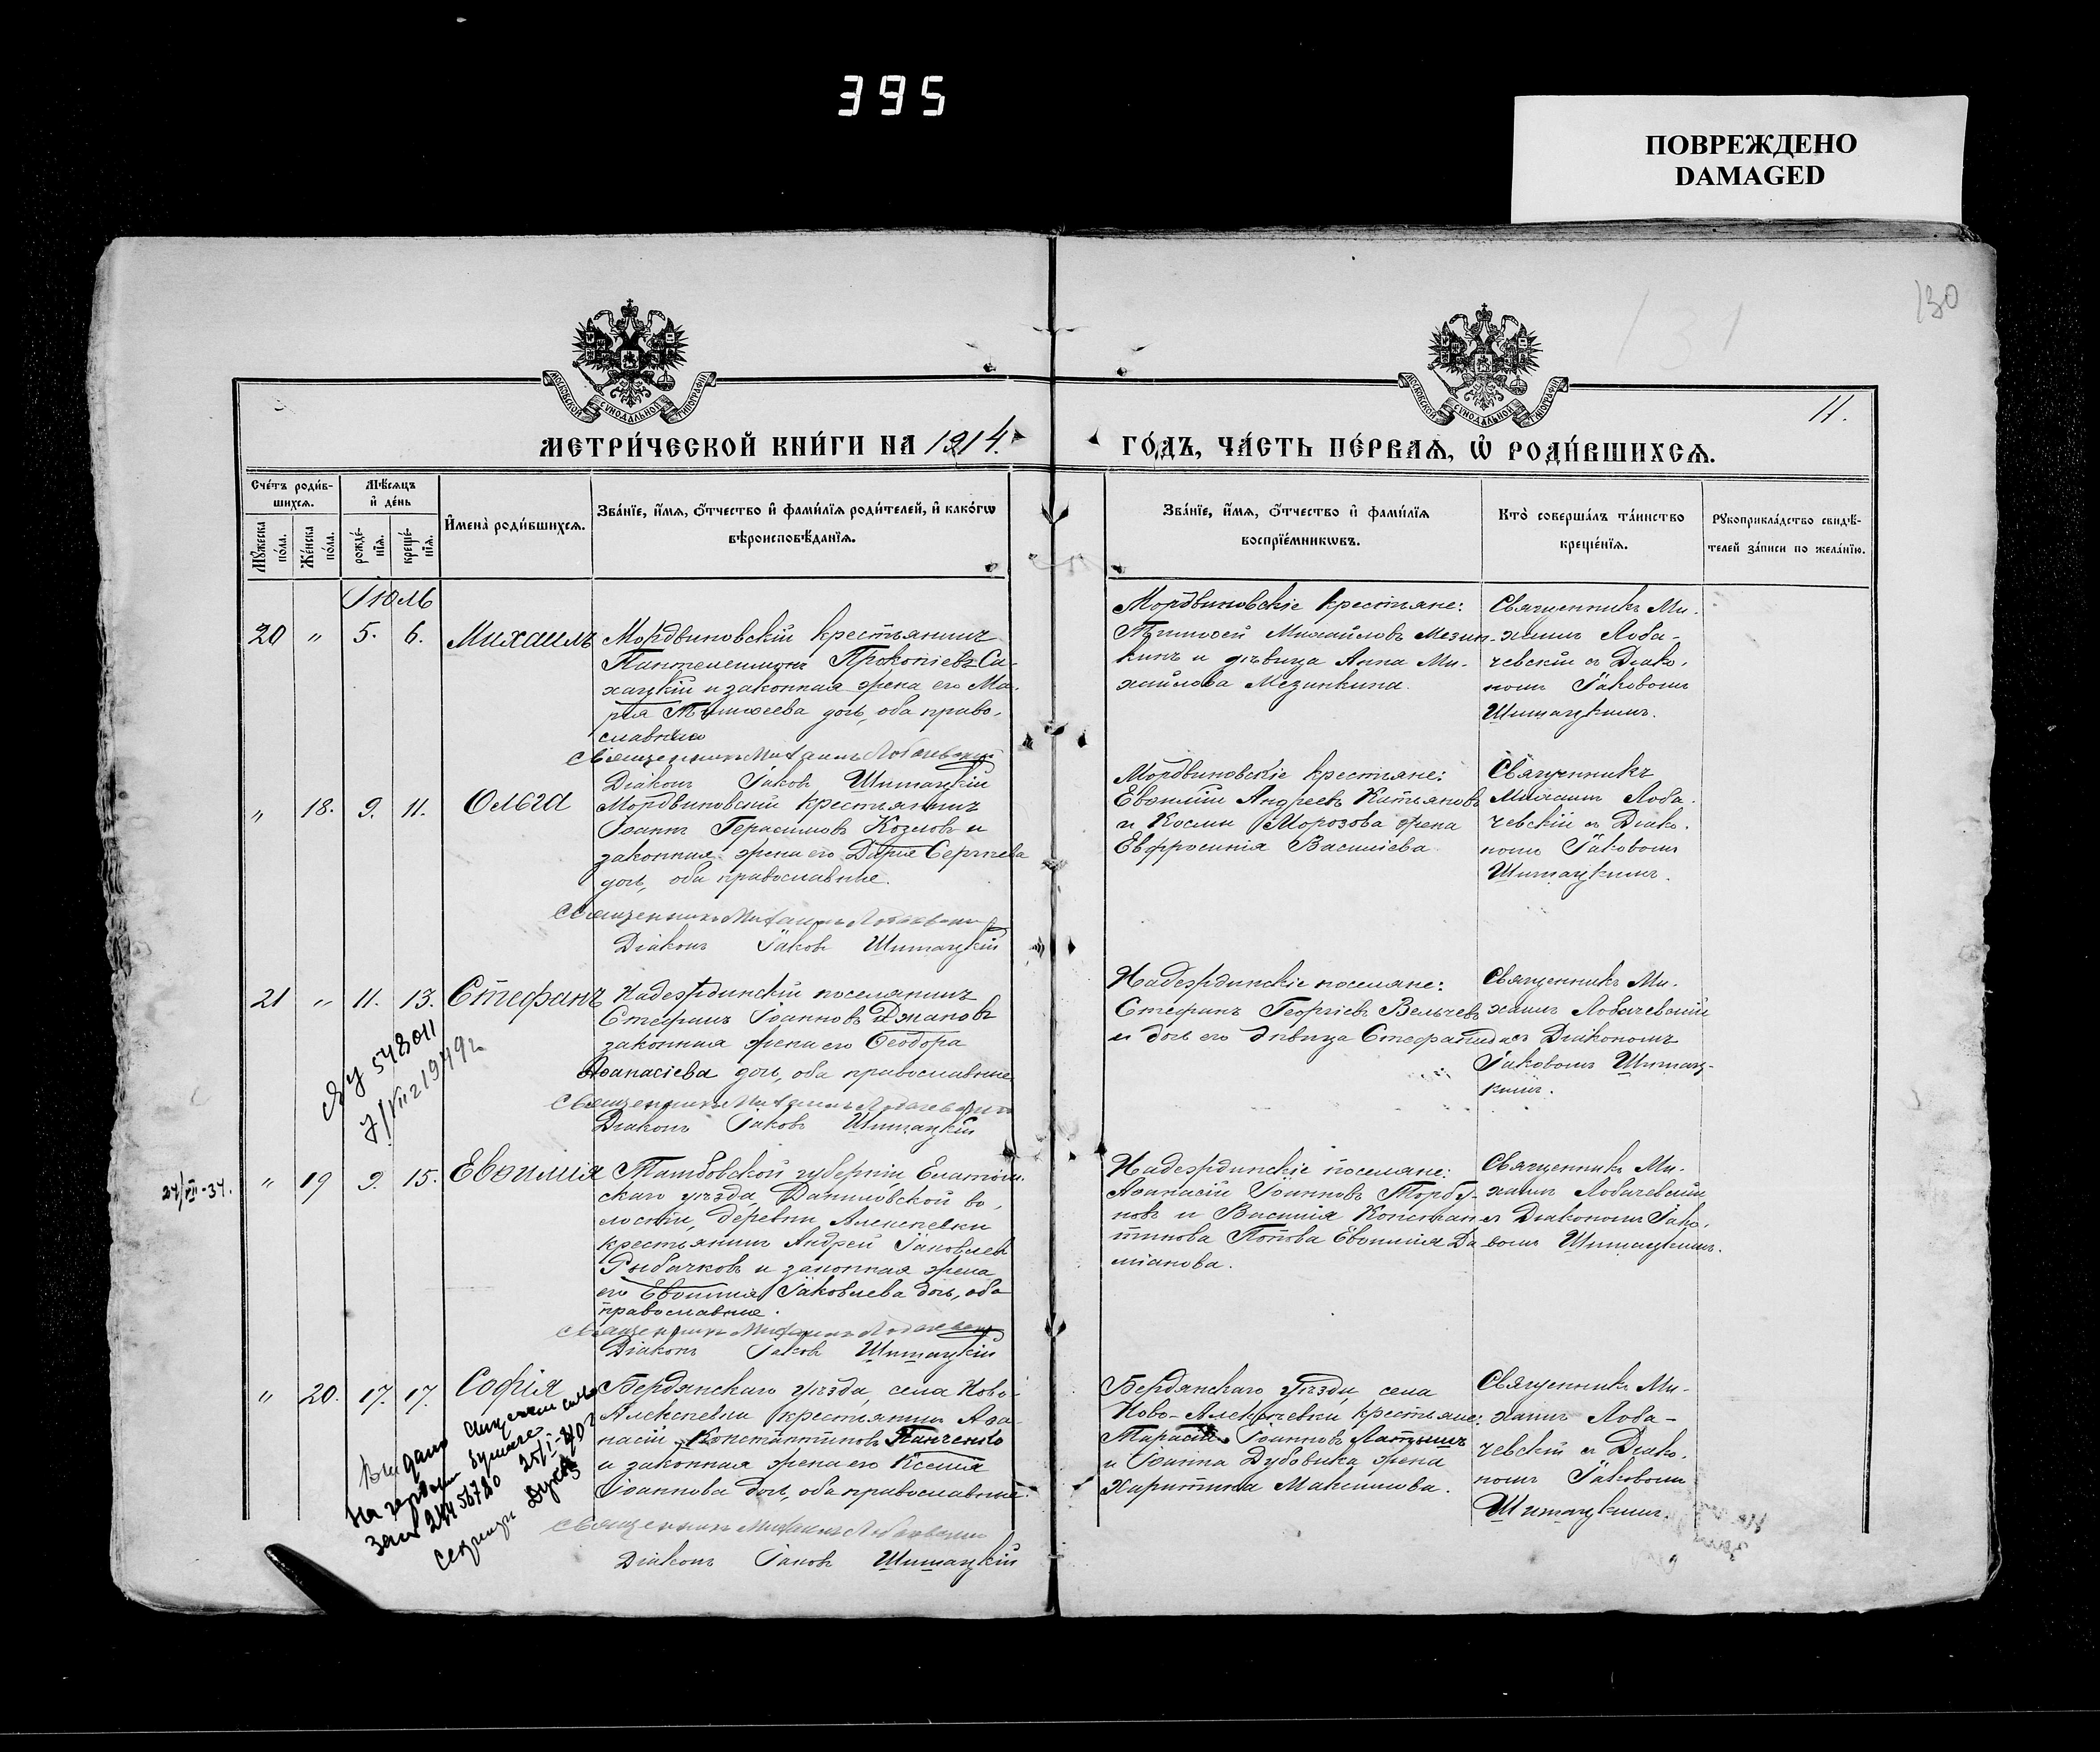 395
ПОВРЕЖДЕНО
DAMAGED
130
131
11.
МОСКОВСКОЙ СѴНОДАЛЬНОЙ ТИПОГРАФІИ
МОСКОВСКОЙ СѴНОДАЛЬНОЙ ТИПОГРАФІИ
МЕТРИ́ЧЕСКОЙ КНИ́ГИ НА 1914.
ГО́ДЪ, ЧА́СТЬ ПЕ́РВАѦ, Ѡ҆ РОДИ́ВШИХСѦ.
Сче́тъ роди́в-
шихсѧ.
Мѣ́сѧцъ
и҆ де́нь
Мꙋ́жеска
по́ла.
Же́нска
по́ла.
рожде́-
нїѧ.
креще́-
нїѧ.
И҆мена̀ роди́вшихсѧ.
Зва́нїе, и҆́мѧ, ѻ҆́тчество и҆ фамѝлїѧ роди́телей, и҆ како́гѡ
вѣроисповѣ́данїѧ.
Зва́нїе, и҆́мѧ, ѻ҆́тчество и҆ фамѝлїѧ
воспрїе́мникѡвъ.
Кто̀ соверша́лъ та́инство
креще́нїѧ.
Рꙋкоприкла́дство свидѣ́-
телей за́писи по жела́нїю.
Іюль
20 " 5. 6. Михаилъ
Мордвиновскій крестьянинъ
Пантелеимонъ Прокопіевъ Са-
хацкій и законная жена его Ма-
рія Тимоѳеева доч., оба право-
славные
Священникъ Михаилъ Лобачевскій
Діаконъ Іаковъ Шишацкій
Мордвиновскіе крестьяне:
Тимоѳей Михайловъ Мезин-
кинъ и дѣвица Анна Ми-
хайлова Мезинкина.
Священникъ Ми-
хаилъ Лоба-
чевскій съ Діако-
номъ Іаковомъ
Шишацкимъ.
" 18. 9. 11. Ольга
Мордвиновскій крестьянинъ
Іоаннъ Герасимовъ Козловъ и
законная жена его Дарія Сергіева
доч., оба православные.
Священникъ Михаилъ Лобачевскій
Діаконъ Іаковъ Шишацкій
Мордвиновскіе крестьяне:
Евѳимій Андреевъ Катьяновъ
и Космы Морозова жена
Евфросинія Васильева
Священникъ
Михаилъ Лоба-
чевскій съ Діако-
номъ Іаковомъ
Шишацкимъ.
21 " 11. 13. Стефанъ
Надеждинскій поселянинъ
Стефанъ Іоанновъ Джановъ
законная жена его Ѳеодора
Аѳанасіева доч., оба православные
Священникъ Михаилъ Лобачевскій
Діаконъ Іаковъ Шишацкій
ЯУ 548011
7/VII 1949г
Надеждинскіе поселяне:
Стефанъ Георгіевъ Вельчевъ
и доч. его дѣвица Стефанида
Священникъ Ми-
хаилъ Лобачевскій
съ Діакономъ
Іаковомъ Шишац-
кимъ.
24/VII-34.
" 19 9. 15. Евѳимія
Тамбовской губерніи, Елатом-
скаго уѣзда, Даниловской во-
лости, деревни Алексѣевки
крестьянинъ Андрей Іаковлевъ
Рыбачковъ и законная жена
его Евѳимія Іаковлева доч., оба
православные.
Священникъ Михаилъ Лобачевскій
Діаконъ Іаковъ Шишацкій
Надеждинскіе поселяне:
Аѳанасій Іоанновъ Торбу-
новъ и Василія Констан-
тинова Попова Евѳимія Да-
міанова.
Священникъ Ми-
хаилъ Лобачевскій
съ Діакономъ Іако-
вомъ Шишацкимъ.
" 20. 17. 17. Софія
Бердянскаго уѣзда, села Ново-
Алексѣевки крестьянинъ Аѳа-
насій Константиновъ Панченко
и законная жена его Ксенія
Іоаннова доч., оба православные.
Священникъ Михаилъ Лобачевскій
Діаконъ Іаковъ Шишацкій
Выдано
на гербовой бумаге
за № 2456780 25/I-40г
секретарь
Бердянскаго уѣзда, села
Ново-Алексѣевки, крестьяне:
Тарасій Іоанновъ Латышъ
и Іоанна Дубовика жена
Харитина Максимова.
Священникъ Ми-
хаилъ Лоба-
чевскій съ Діако-
номъ Іаковомъ
Шишацкимъ.